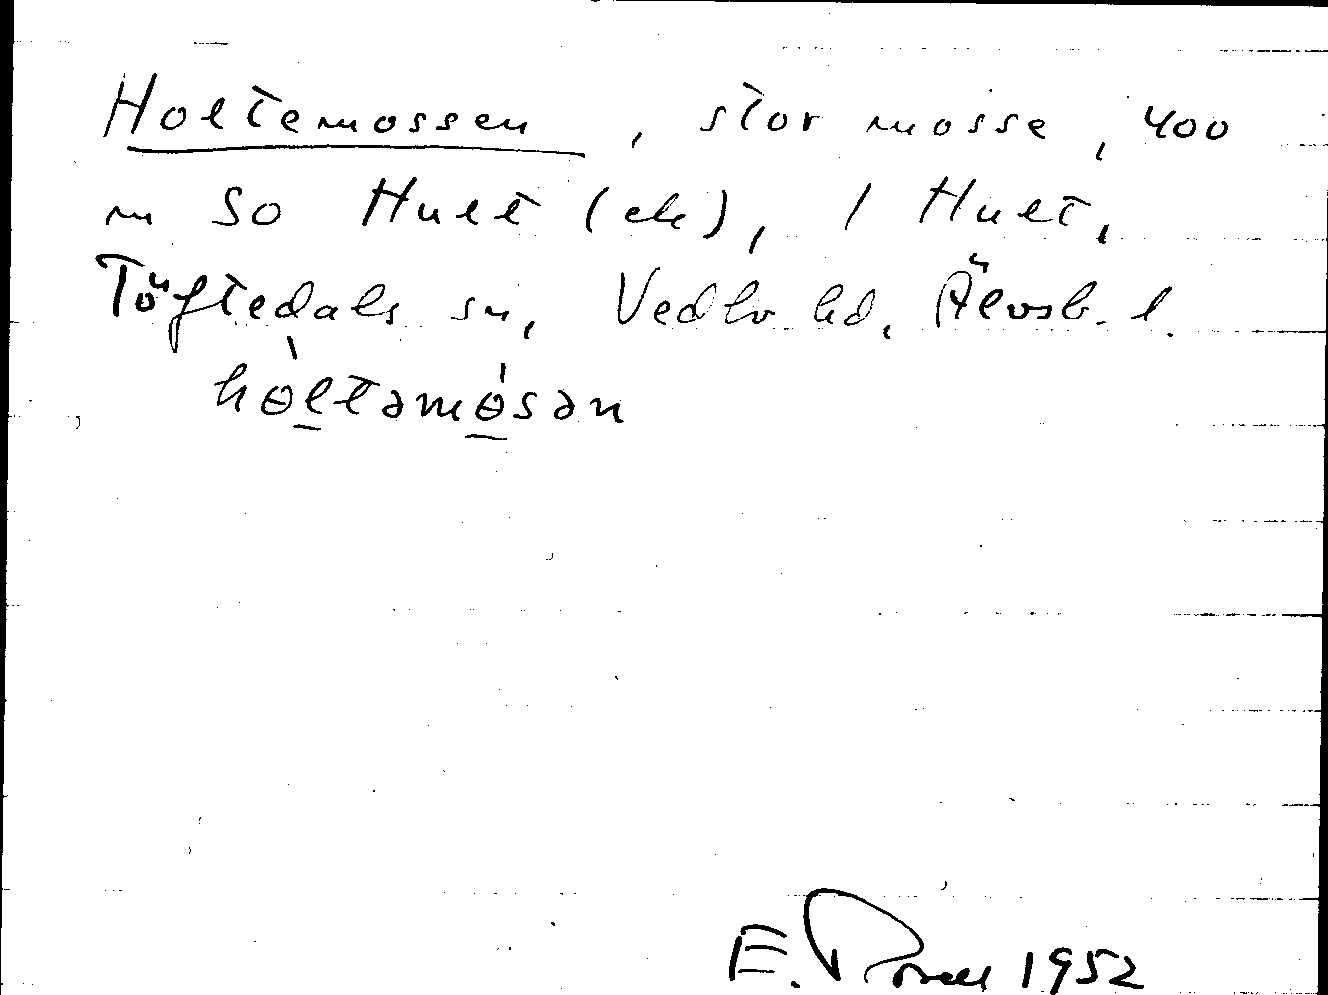 Holtemossen, stor mosse, 400
m SO Hult (ek), 1 Hult,
Töftedals sn, Vedbo hd, Älvsb. l.
hòltəmósən
E. 1952